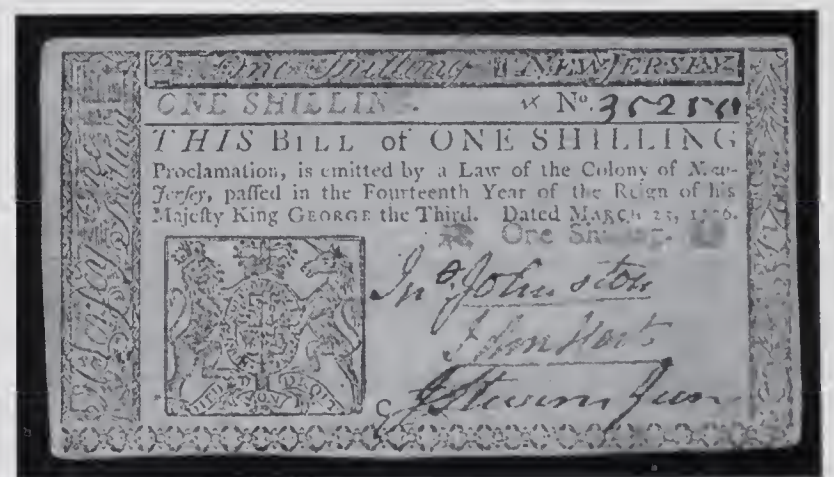 One Shilling NEW JERSEY
ONE SHILLING. Nº.
THIS BILL of ONE SHILLING
Proclamation, is emitted by a Law of the Colony of New-
Jersey, paſſed in the Fourteenth Year of the Reign of his
Majeſty King GEORGE the Third. Dated MARCH 25, 1776.
One Shilling.
Jnº. Johnston
John Hart
J Stevens Jun
C
Jersey Shilling